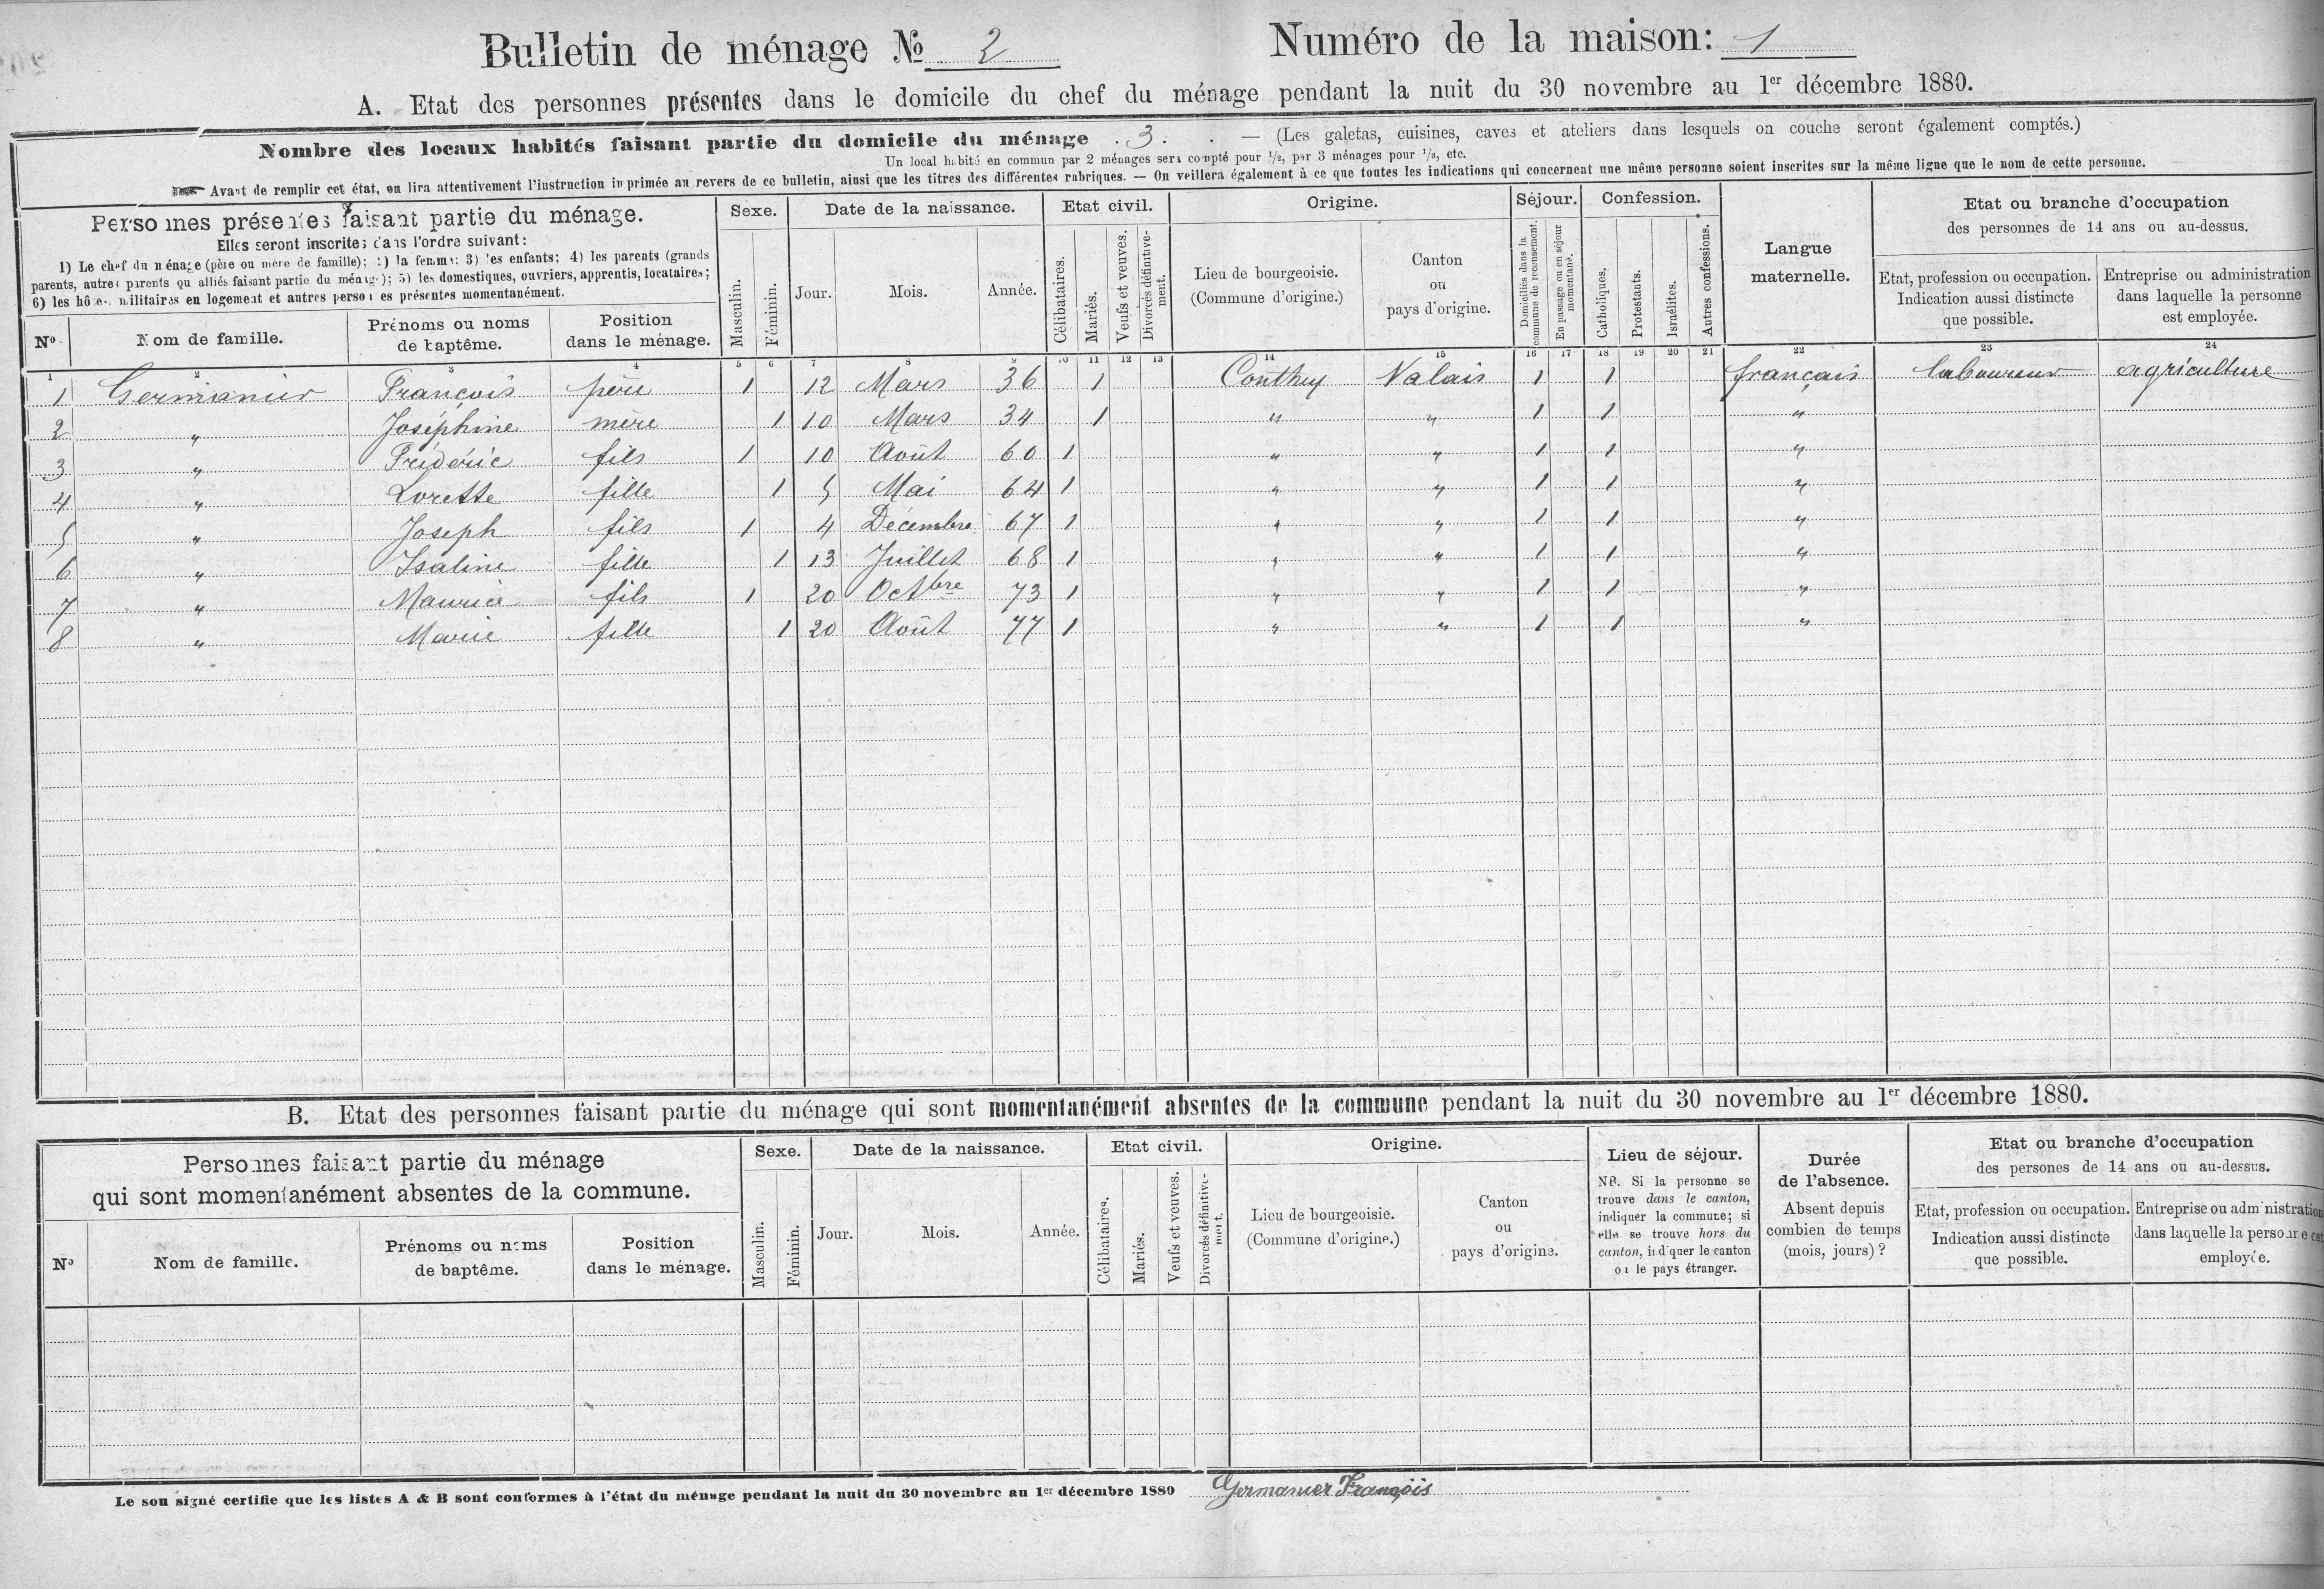 Bulletin de ménage № 2
Numéro de la maison: 1
A. Etat des personnes présentes dans le domicile du chef du ménage pendant la nuit du 30 novembre au 1er décembre 1880.
Nombre des locaux habités faisant partie du domicile du ménage . 3 . . — (Les galetas, cuisines, caves et ateliers dans lesquels on couche seront également comptés.)
Un local habité en commun par 2 ménages sera compté pour 1/2, par 3 ménages pour 1/3, etc.
Avant de remplir cet état, on lira attentivement l'instruction imprimée au revers de ce bulletin, ainsi que les titres des différentes rubriques. — On veillera également à ce que toutes les indications qui concernent une même personne soient inscrites sur la même ligne que le nom de cette personne.
Personnes présentes faisant partie du ménage.
Elles seront inscrites dans l'ordre suivant:
1) Le chef du ménage (père ou mère de famille); 2) la femme; 3) les enfants; 4) les parents (grands
parents, autres parents ou alliés faisant partie du ménage); 5) les domestiques, ouvriers, apprentis, locataires;
6) les hôtes, militaires en logement et autres personnes présentes momentanément.
No Nom de famille. Prénoms ou noms de baptême. Position dans le ménage.
Sexe. Masculin. Féminin.
Date de la naissance. Jour. Mois. Année.
Etat civil. Célibataires. Mariés. Veufs et veuves. Divorcés définitivement.
Origine. Lieu de bourgeoisie. (Commune d'origine.) Canton ou pays d'origine.
Séjour. Domiciliés dans la commune de recensement. En passage ou en séjour momentané.
Confession. Catholiques. Protestants. Israélites. Autres confessions.
Langue maternelle.
Etat ou branche d'occupation
des personnes de 14 ans ou au-dessus.
Etat, profession ou occupation. Indication aussi distincte que possible.
Entreprise ou administration dans laquelle la personne est employée.
1 2 3 4 5 6 7 8 9 10 11 12 13 14 15 16 17 18 19 20 21 22 23 24
1 Germanier François père 1 12 Mars 36 1 Conthey Valais 1 1 français laboureur agriculture
2 " Joséphine mère 1 10 Mars 34 1 " " 1 1 "
3 " Fréderic fils 1 10 Août 60 1 " " 1 1 "
4 " Lorette fille 1 5 Mai 64 1 " " 1 1 "
5 " Joseph fils 1 4 Décembre 67 1 " " 1 1 "
6 " Isaline fille 1 13 Juillet 68 1 " " 1 1 "
7 " Maurice fils 1 20 Octbre 73 1 " " 1 1 "
8 " Marie fille 1 20 Août 77 1 " " 1 1 "
B. Etat des personnes faisant partie du ménage qui sont momentanément absentes de la commune pendant la nuit du 30 novembre au 1er décembre 1880.
Personnes faisant partie du ménage
qui sont momentanément absentes de la commune.
No Nom de famille. Prénoms ou noms de baptême. Position dans le ménage.
Sexe. Masculin. Féminin.
Date de la naissance. Jour. Mois. Année.
Etat civil. Célibataires. Mariés. Veufs et veuves. Divorcés définitivement.
Origine. Lieu de bourgeoisie. (Commune d'origine.) Canton ou pays d'origine.
Lieu de séjour.
NB. Si la personne se
trouve dans le canton,
indiquer la commune; si
elle se trouve hors du
canton, indiquer le canton
ou le pays étranger.
Durée
de l'absence.
Absent depuis
combien de temps
(mois, jours) ?
Etat ou branche d'occupation
des persones de 14 ans ou au-dessus.
Etat, profession ou occupation. Indication aussi distincte que possible.
Entreprise ou administration dans laquelle la personne est employée.
Le soussigné certifie que les listes A & B sont conformes à l'état du ménage pendant la nuit du 30 novembre au 1er décembre 1880 Germanier François